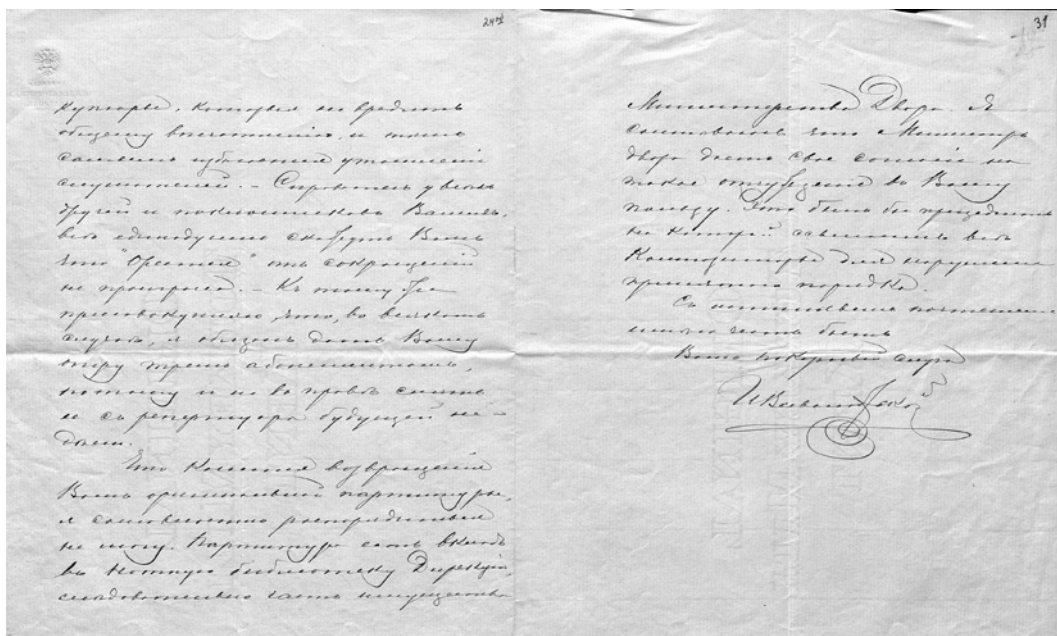 24 об
купюры, которыя не вредятъ
общему впечатлѣнію, и только
слушателей. – Спросите у всѣхъ
друзей и поклонниковъ Вашихъ,
всѣ единодушно скажутъ Вамъ
что "Орестея" отъ сокращеній
не проиграла. – Къ тому же
присовокупляю, что, во всякомъ
случаѣ, я обязанъ дать Вашу
оперу тремъ абонементамъ,
потому и не въ правѣ снять
ее съ репертуара будущей не-
дѣли.
Что касается возвращенія
Вамъ оригинальной партитуры,
я самовластно распорядиться
не могу. Партитура есть вкладъ
въ нотную библіотеку Дирекціи,
слѣдовательно часть имущества
31
Министерства Двора. Я
что Министръ
Двора дастъ свое согласіе на
такое отчужденіе въ Вашу
пользу. Это былъ бы прецедентъ
на который ссылались всѣ
Композиторы для нарушенія
принятаго порядка.
Съ истиннымъ почтеніемъ
имѣю честь быть
Вашъ покорный слуга
ИВсеволожской